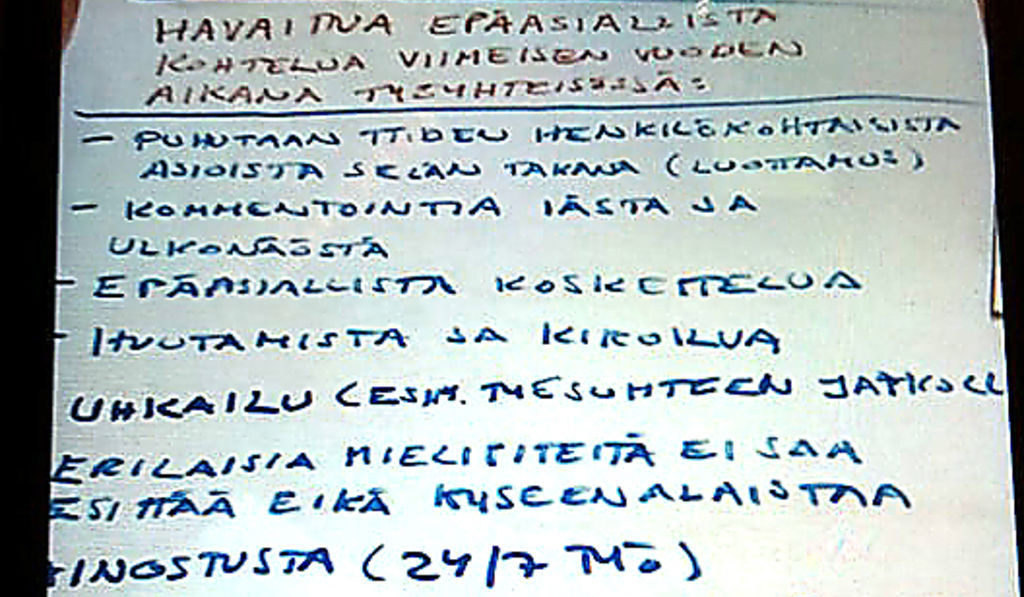 HAVAITTUA EPÄASIALLISTA
KOHTELUA VIIMEISEN VUODEN
AIKANA TYÖYHTEISÖSSÄ:
- PUHUTAAN TTIDEN HENKILÖKOHTAISISTA
ASIOISTA SELÄN TAKANA (LUOTTAMUS)
- KOMMENTOINTIA IÄSTÄ JA
ULKONÄÖSTÄ
- EPÄASIALLISTA KOSKETTELUA
- HUUTAMISTA JA KIROILUA
UHKAILU (ESIM. TYÖSUHTEEN JATKOLL
ERILAISIA MIELIPITEITÄ EI SAA
ESITTÄÄ EIKÄ KYSEENALAISTAA
INOSTUSTA (24/7 TYÖ)